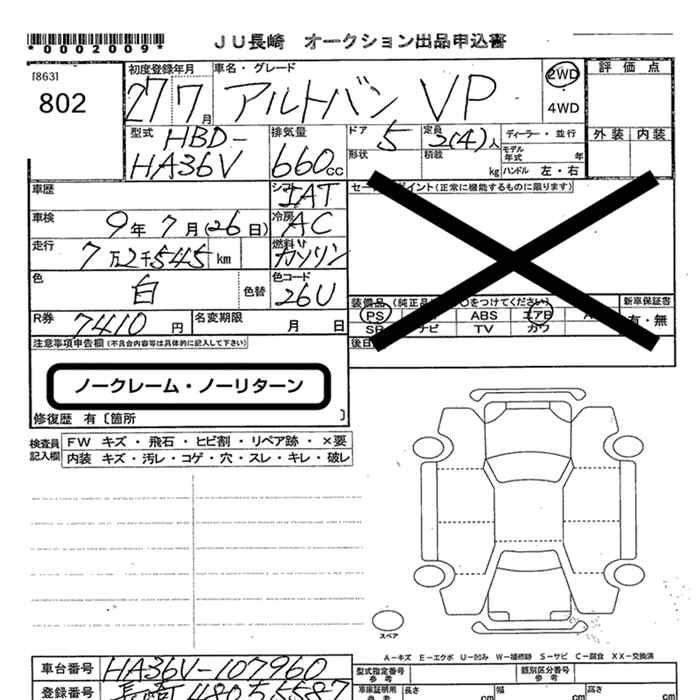 *0002009*
JU長崎 オークション出品申込書
[863]
802
初度登録年月
27 7月
車名・グレード
アルトバン VP
2WD
4WD
評価点
外装 内装
型式
HBD-
HA36V
排気量
660cc
ドア 5
定員 2(4)人
ディーラー・並行
形状
積載 kg
モデル年式 年
ハンドル 左・右
車歴
シフト IAT
セールスポイント(正常に機能するものに限ります)
車検 9年 7月(26日)
冷房 AC
走行 7万2千545 km
燃料 ガソリン
色 白
色替
色コード 26U
装備品(純正品に○をつけてください)
新車保証書
有・無
PS ABS エアB
SR ナビ TV カワ
R券 7410円
名変期限 月 日
後日
注意事項申告欄(不具合内容等は具体的に記入して下さい)
ノークレーム・ノーリターン
修復歴 有〔箇所 〕
検査員記入欄
FW キズ・飛石・ヒビ割・リペア跡・×要
内装 キズ・汚レ・コゲ・穴・スレ・キレ・破レ
スペア
A−キズ E−エクボ U−凹み W−補修跡 S−サビ C−腐食 XX−交換済
車台番号 HA36V-107960
型式指定番号 参考
類別区分番号 参考
登録番号 長崎 480
車庫証明用 参考
長さ cm 幅 cm 高さ cm